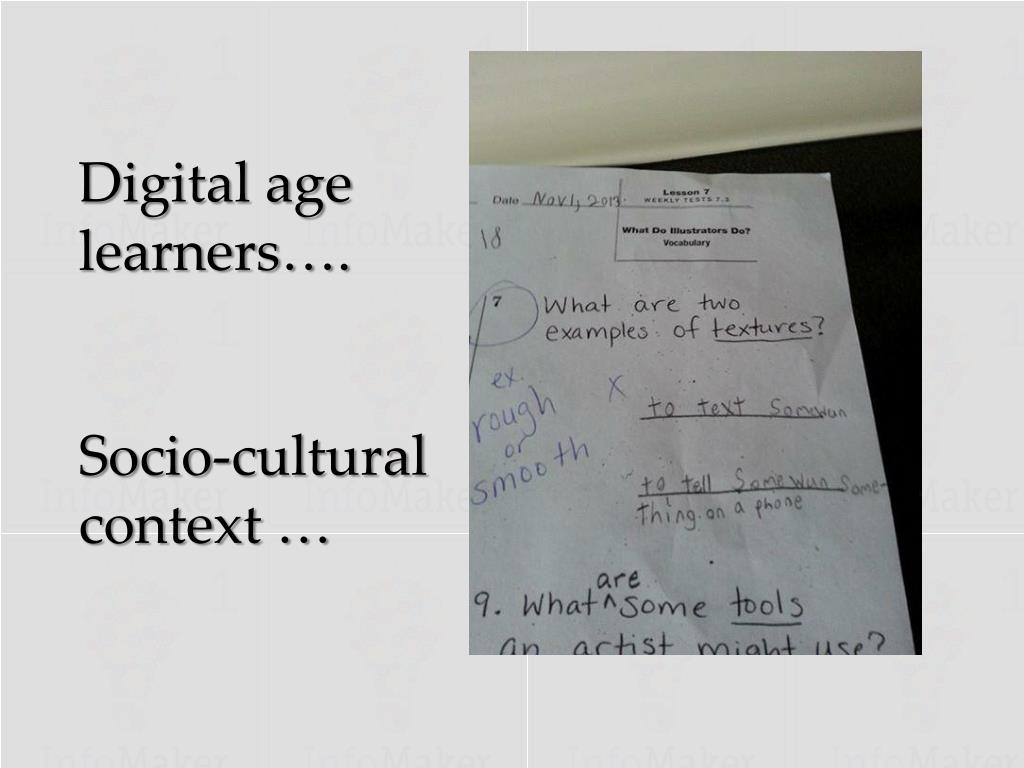 Digital age
learners….
Socio-cultural
context …
Date Nov 1, 2013.
Lesson 7
WEEKLY TESTS 7.3
What Do Illustrators Do?
Vocabulary
18
7
What are two
examples of textures?
ex.
rough
or
smooth
X
to text Somewun
to tell Somewun Some-
thing on a phone
are
9. What ^ some tools
an artist might use?
InfoMaker
InfoMaker
InfoMaker
InfoMaker
InfoMaker
InfoMaker
InfoMaker
InfoMaker